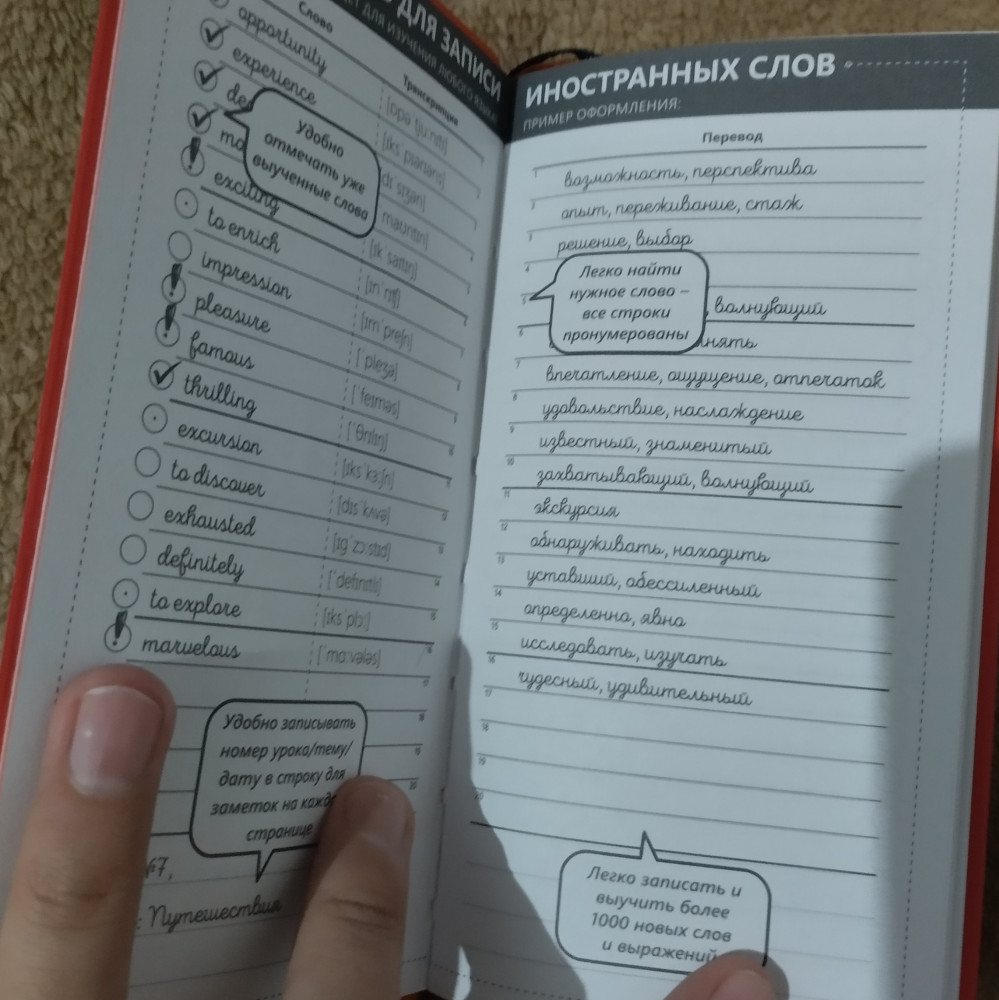 ДЛЯ ЗАПИСИ
ДЛЯ ИЗУЧЕНИЯ ЛЮБОГО ЯЗЫКА
Слово
Транскрипция
opportunity
experience
de
ma
exciting
to enrich
impression
pleasure
famous
thrilling
excursion
to discover
exhausted
definitely
to explore
marvelous
Удобно
отмечать уже
выученные слова
[ɪmˈpreʃn]
[ˈpleʒə]
[ˈfeɪməs]
[ˈθrɪlɪŋ]
[ɪksˈkɜːʃn]
[dɪsˈkʌvə]
[ɪgˈzɔːstɪd]
[ˈdefɪnɪtlɪ]
[ɪksˈplɔː]
[ˈmɑːvələs]
Удобно записывать
номер урока/тему/
дату в строку для
заметок на кажд
странице
№7,
: Путешествия
ИНОСТРАННЫХ СЛОВ
ПРИМЕР ОФОРМЛЕНИЯ:
Перевод
1 возможность, перспектива
2 опыт, переживание, стаж
3 решение, выбор
4
5 , волнующий
6 нять
7 впечатление, ощущение, отпечаток
8 удовольствие, наслаждение
9 известный, знаменитый
10 захватывающий, волнующий
11 экскурсия
12 обнаруживать, находить
13 уставший, обессиленный
14 определенно, явно
15 исследовать, изучать
16 чудесный, удивительный
17
18
19
20
Легко найти
нужное слово –
все строки
пронумерованы
Легко записать и
выучить более
1000 новых слов
и выражений